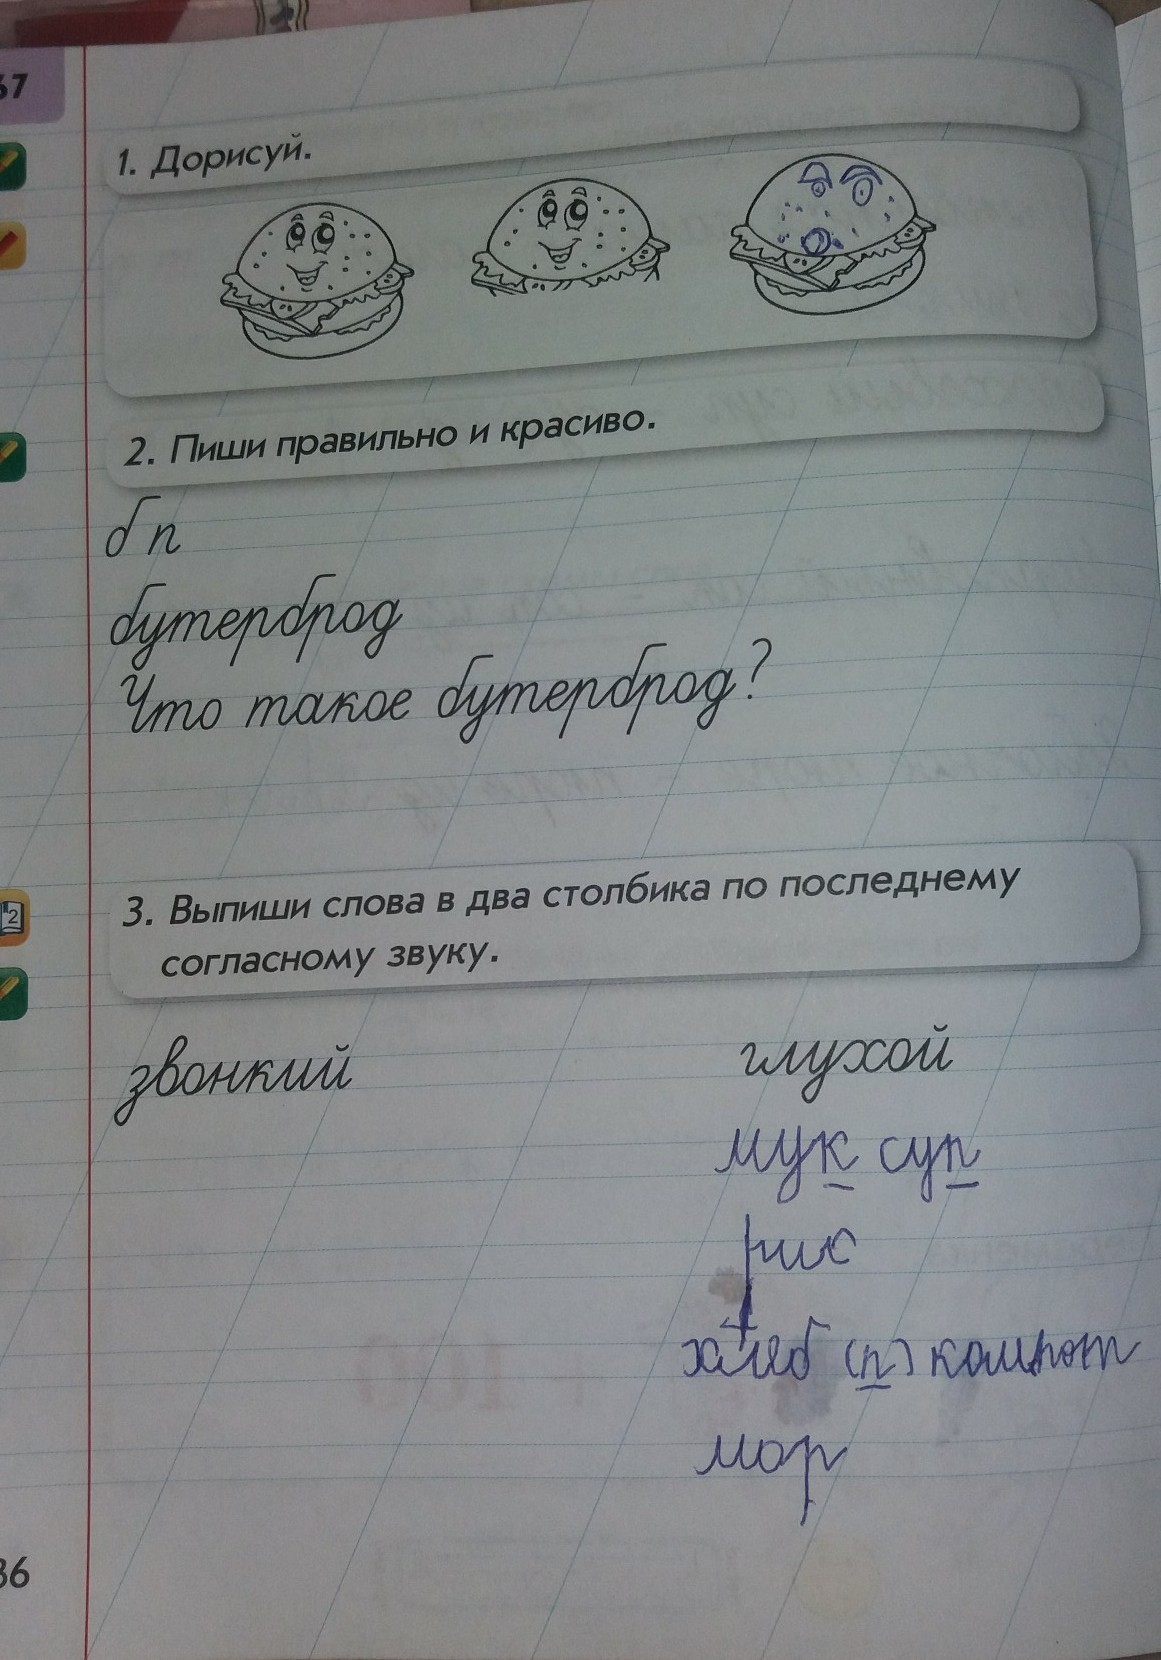 67
1. Дорисуй.
2. Пиши правильно и красиво.
б п
бутерброд
Что такое бутерброд?
3. Выпиши слова в два столбика по последнему
согласному звуку.
2
звонкий глухой
мук суп
рис
хлеб (п) компот
мор
36